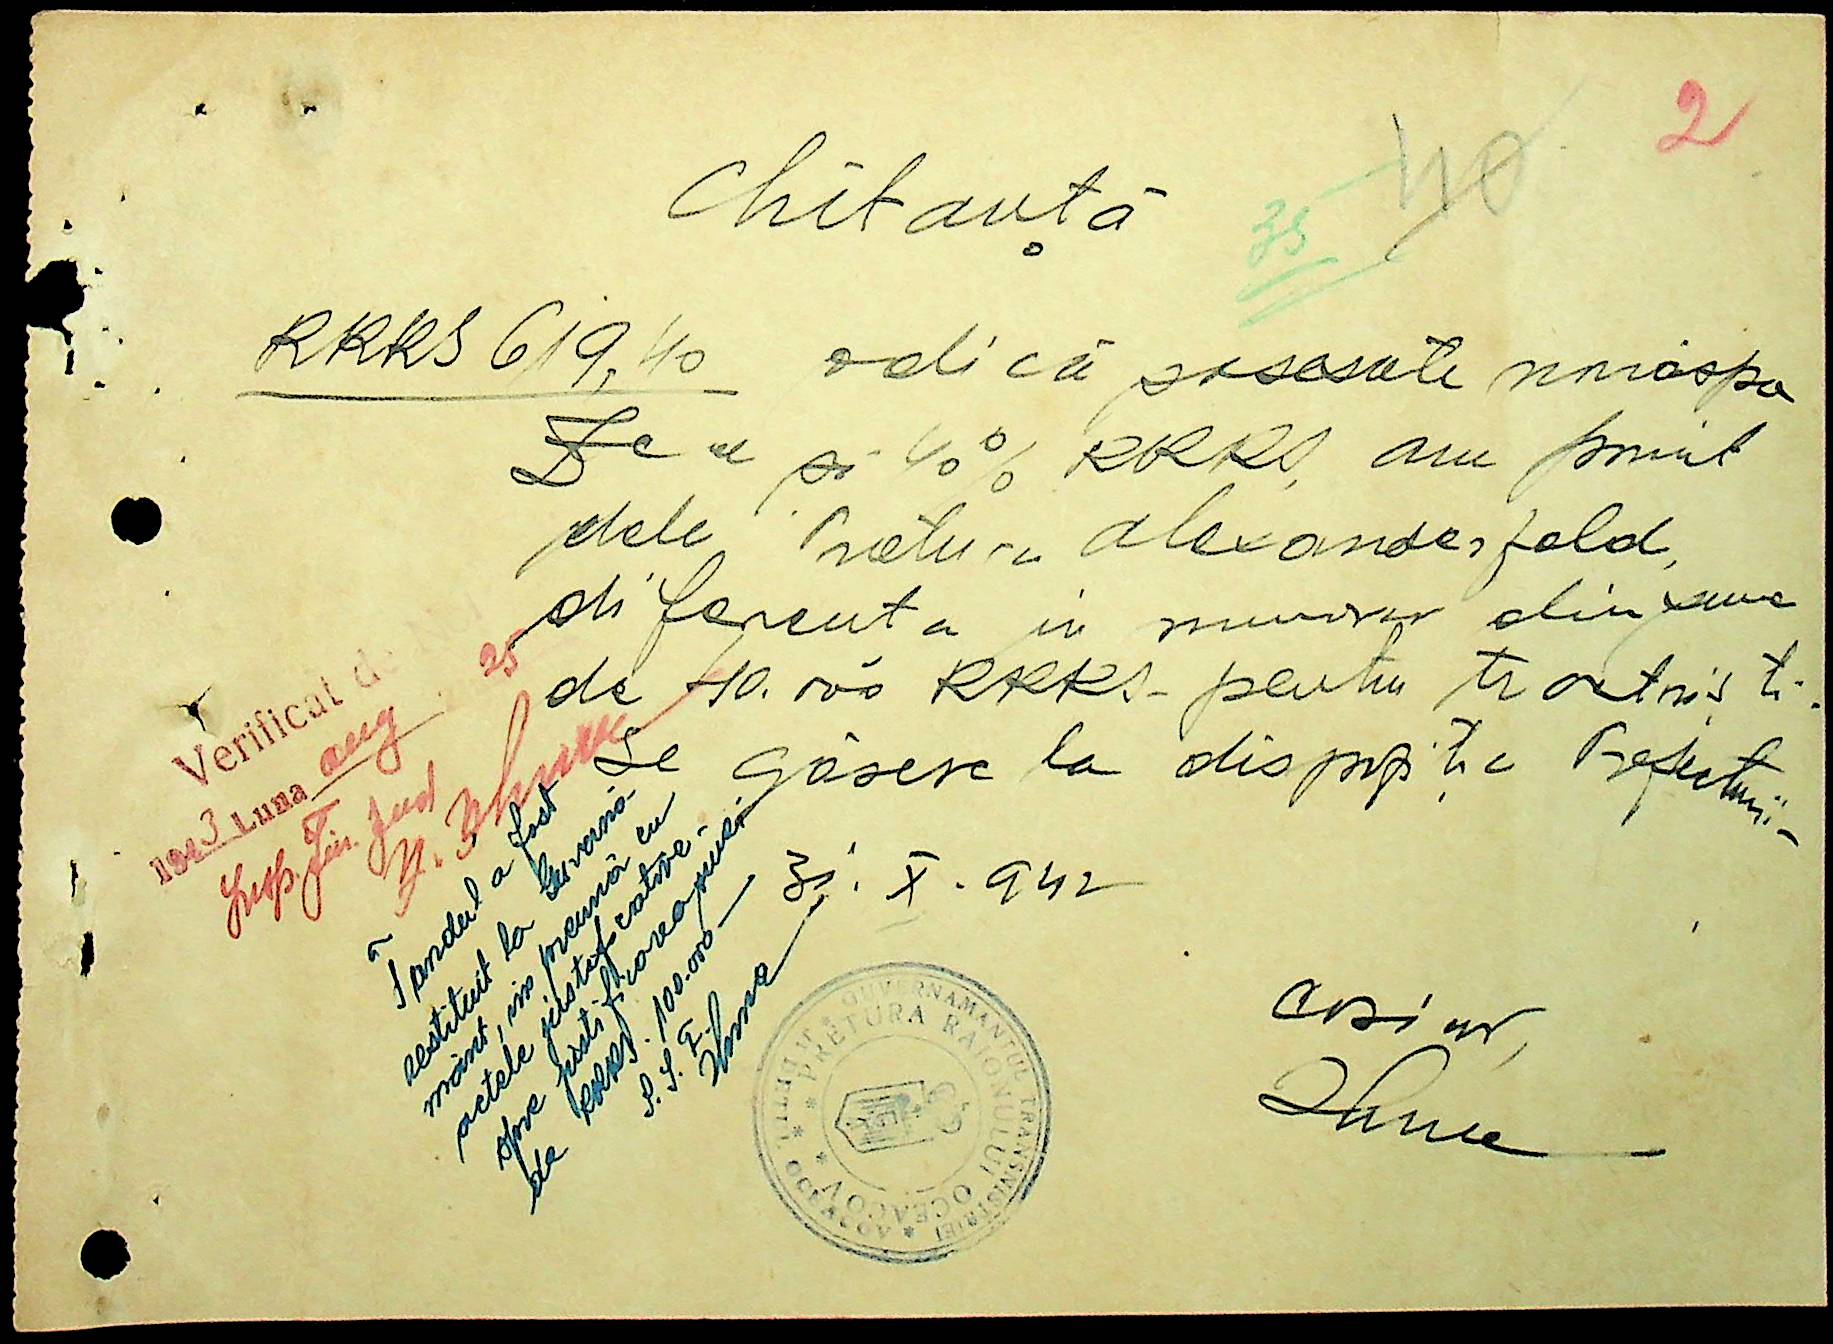 2
40
35
Chitanță
RKKS 619,40 adică șasesute nouăspre
zece și 40% RKKS, am primit
dela Pretura Alexanderfeld,
diferenta in numerar din suma
de 40.000 RKKS - pentru tractoriști.
Se găsesc la dispoziția Prefecturii
31. X. 942
Casier,
Verificat de
25
1943 Luna aug
Insp. Fin. Jud
Spandul a fost
restituit la Guvernă-
mânt, în preună cu
actele justificative
spre justificarea
de RKKS. 100.000
GUVERNAMANTUL TRANSNISTRIEI * JUDETUL OCEACOV *
* PRETURA RAIONULUI OCEACOV *